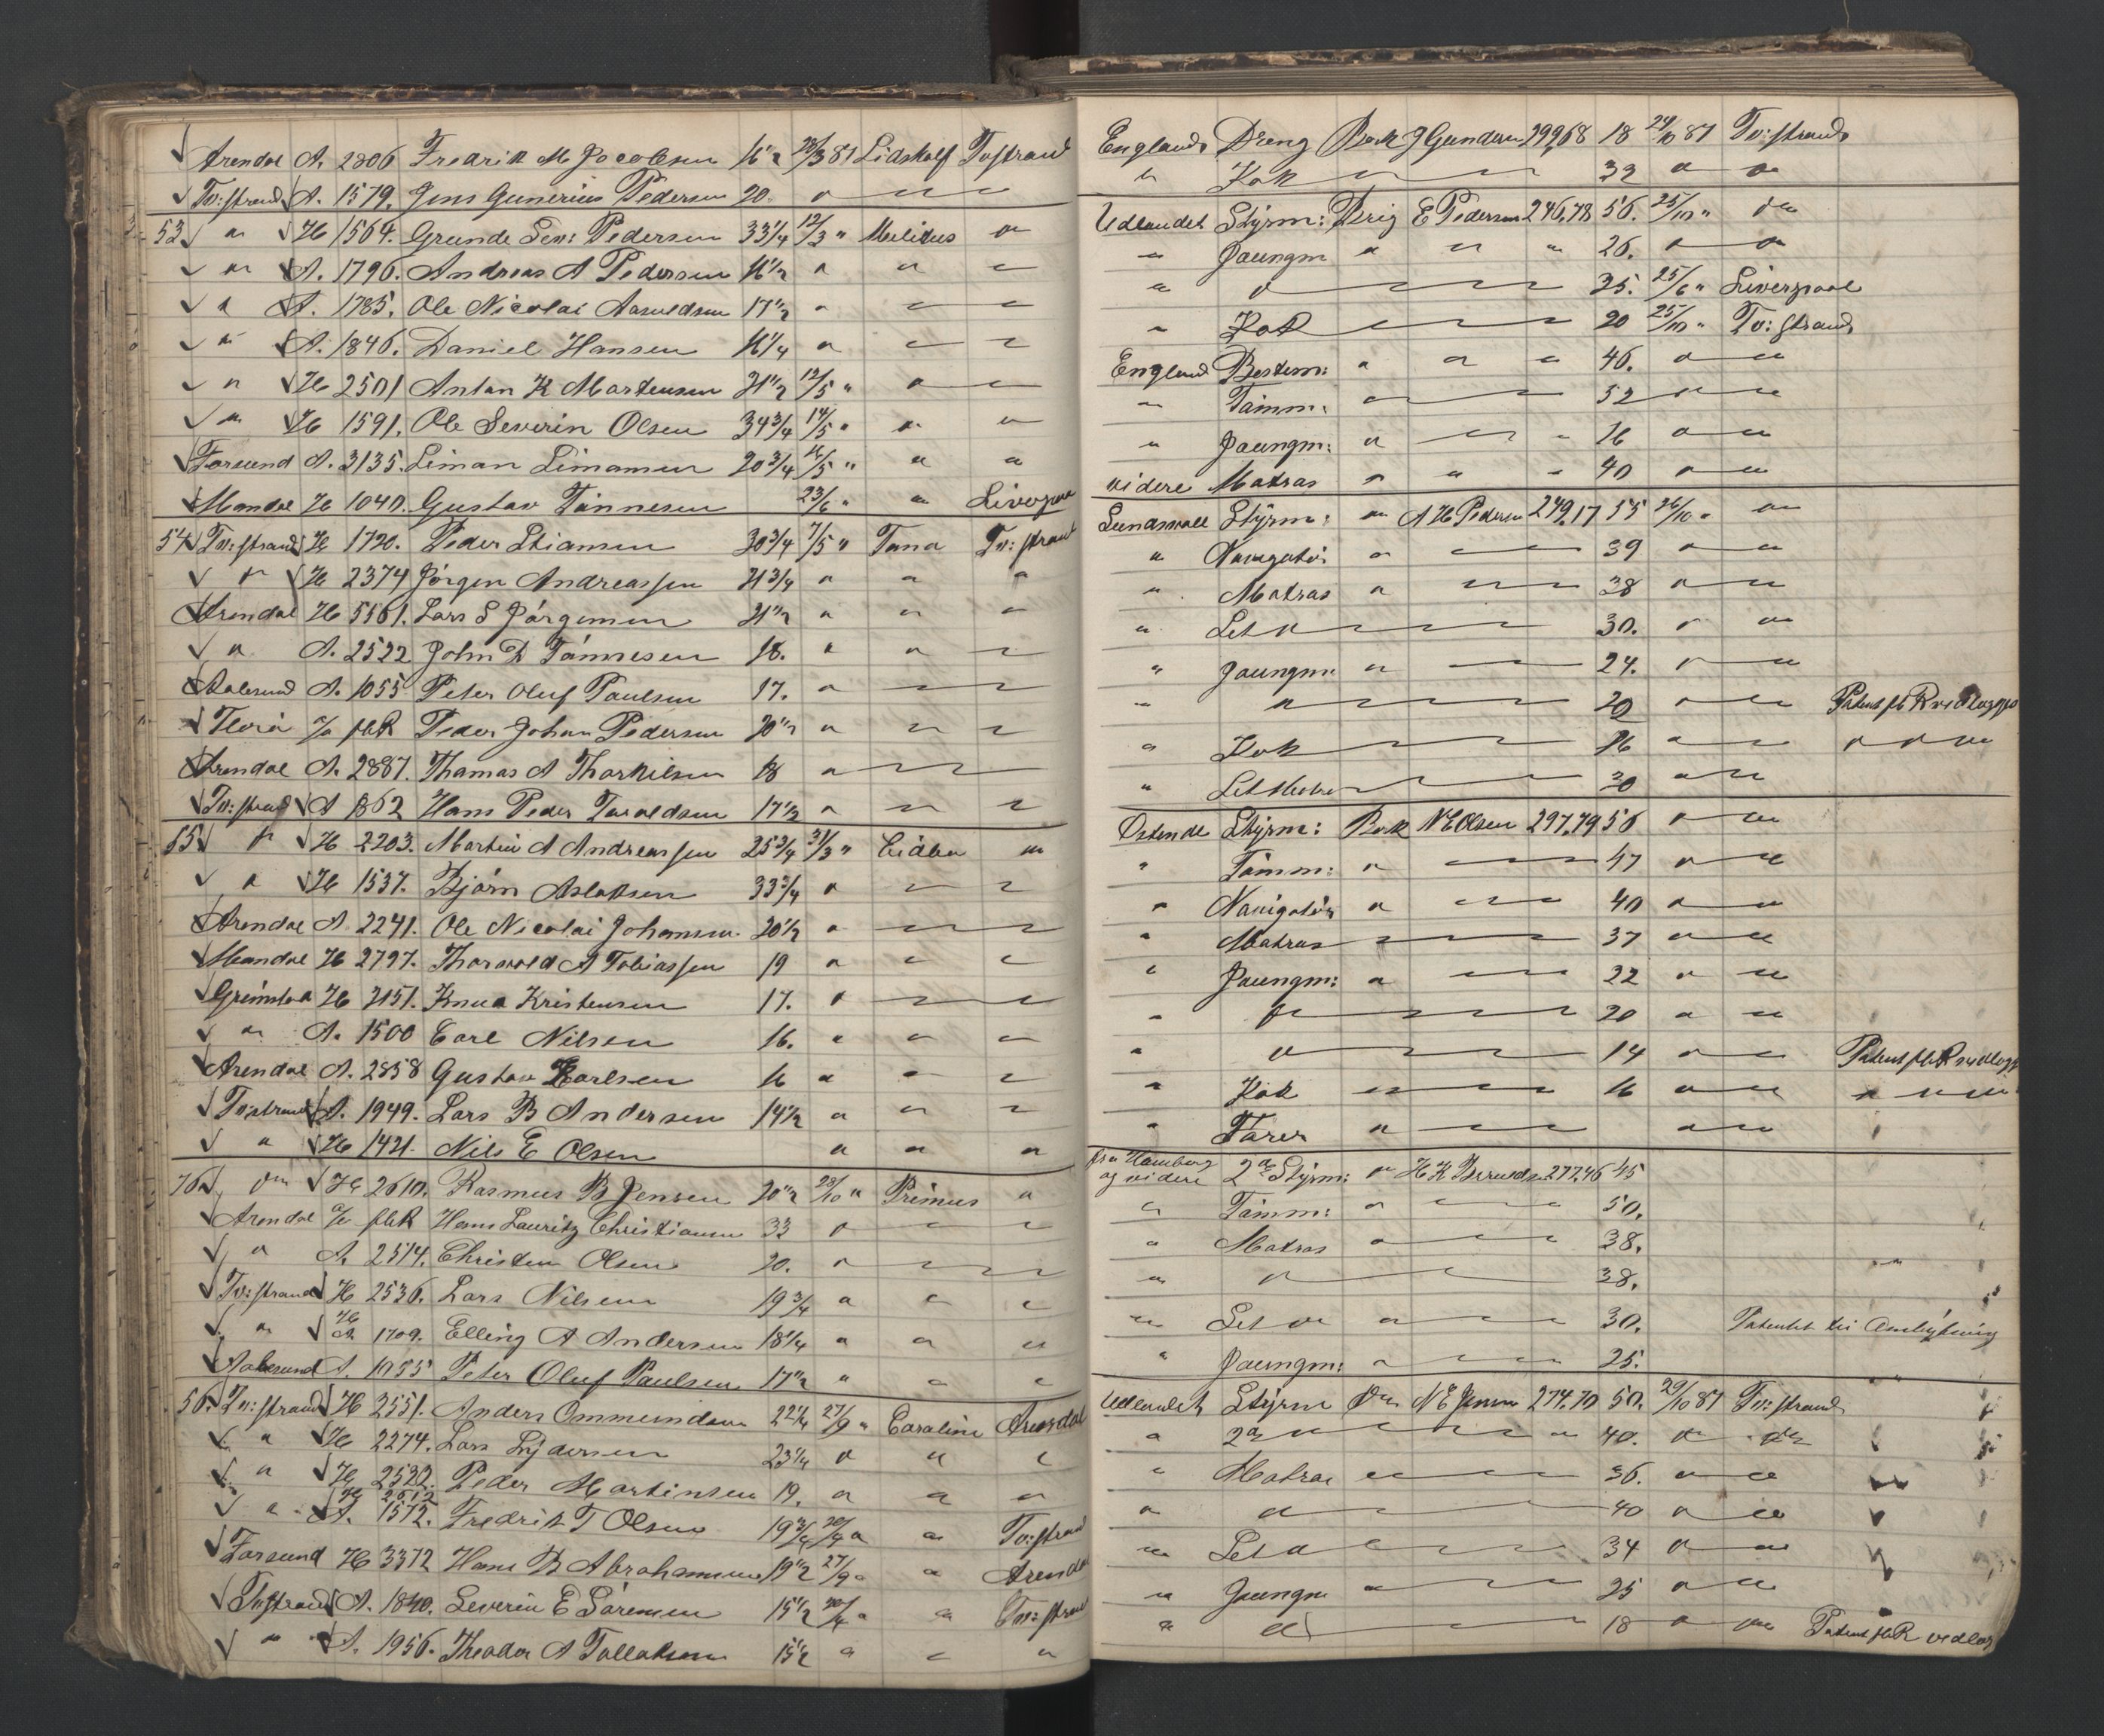 Arendal A. 2806 Fredrik M Jacobsen 16 1/2 28/3 81 Lidskalf Tvstrand
Tv:strand A. 1579. Jens Gunerius Pedersen 20. "
53 " H 1564. Grunde Sev: Pedersen 33 1/4 12/3 " Militus "
" A. 1796. Andreas A Pedersen 16 1/2 " " "
" A. 1785. Ole Nicolai Aasuldsen 17 1/2 " "
" A. 1846. Daniel Hansen 16 1/4 " " "
" H 2501 Anton K Martensen 21 1/2 12/5 " " "
" H 1591. Ole Severin Olsen 34 3/4 14/5 " " "
Farsund A. 3135. Simon Simonsen 20 3/4 16/5 " " "
Mandal H 1040. Gustav Tønnesen 23/6 " "
54 Tv:strand H 1720. Peder Stiansen 30 3/4 7/5 " Tana Tv:strand
" H 2374 Jörgen Andreassen 21 3/4 " " "
Arendal H 5561. Lars S Jørgensen 21 1/2 " " "
" A. 2522 John D Tønnesen 18. " " "
Aalesund A. 1055 Peter Oluf Paulsen 17. " "
Florø flR Peder Johan Pedersen 20 1/2 " " "
Arendal A. 2887. Thomas A Thorkilsen 18 "
Tv:strand A 1862 Hans Peder Taraldsen 17 1/2 " " "
55 " H 2203. Martin A Andreassen 25 3/4 31/3 " Cidba "
" H 1537. Bjørn Aslaksen 33 3/4 " " "
Arendal A. 2241. Ole Nicolai Johansen 20 1/2 "
Mandal H 2797. Thorvald A Tobiassen 19 " " "
Grimstad H 2151. Knud Kristensen 17. " "
" A. 1500 Carl Nilsen 16. " " "
Arendal A. 2858 Gustav Karlsen 16 " " "
Tv:strand A. 1949. Lars B Andersen 14 1/2 " " "
" H 1421. Nils E Olsen " " "
76 " H 2610. Rasmus B Jensen 20 1/2 28/10 " Primus "
Arendal flR Hans Lauritz Christiansen 33 " " "
" A. 2514. Christen Olsen 20. "
Tv:strand H 2536. Lars Nilsen 19 3/4 " " "
" H A. 1709. Elling A Andersen 18 1/4 " " "
Aalesund A. 1055 Peter Oluf Paulsen 17 1/2 " " "
56. Tv:strand H 2551. Anders Ommundsen 22 1/4 27/9 " Caroline Arendal
" H 2274. Lars Lydersen 23 1/4 " " "
" H 2522. Peder Martinsen 19. " " "
" H 2612 A. 1572. Fredrik T Olsen 19 3/4 " " Tv:strand
Farsund H 3372 Hans B Abrahamsen 19 1/2 27/9 " " Arendal
Tvstrand A. 1840. Severin E Sørensen 15 1/2 " " Tv:strand
" A. 1956. Theodor A Tallaksen 15 1/2 " " "
England Dreng Bark J Gundersen 299,68 18 24/10 81 Tv:strand
" Kok " " 32 " "
Udlandet Styrm: Brig E Pedersen 246,78 56. 25/10 " "
" Jaungm " " " 26. " "
" " 25. 25/6 " Liverpool
" Kok 20 25/10 " Tv:strand
England Bestem: " " " 46. " "
" Tømm: " 52 " "
" Jaungm: " " 16 " "
videre Matros " " " 40 " "
Sundsvall Styrm: " A H Pedersen 249,17 55 26/10 " "
" Navigatør " 39 " "
" Matros " 38 " "
" Let " 30. " "
" Jaungm " 24. " "
" " 20 " " Patent flR vedlagges
" Kok 16 " " " " "
" Let Matros 30 " "
Ostende Styrm: Bark N E Olsen 297,79 56 " "
" Tømm: " 47 " "
" Navigatør " 40 " "
" Matros 37 " "
" Jaungm: " 22 " "
" " 20 " "
" " 14 " " Patent flR vedlagges
" Kok 16 " " " " "
" Fører " " "
fra Hamborg
og videre 2den Styrm: " 277,46 45
" Tømm: " 50.
" Matros " 38.
" " 38.
" Let " " 30. Patentet til Ombytning
" Jaungm: " 25.
Udlandet Styrm " N E Jensen 274,70 50. 29/10 81 Tv:strand
" 2den " 40. " "
" Matros 36. " "
" " 40 " "
" Let " 34 " "
" Jaungm " 25 " "
" " 18 " " Patent flR vedlag